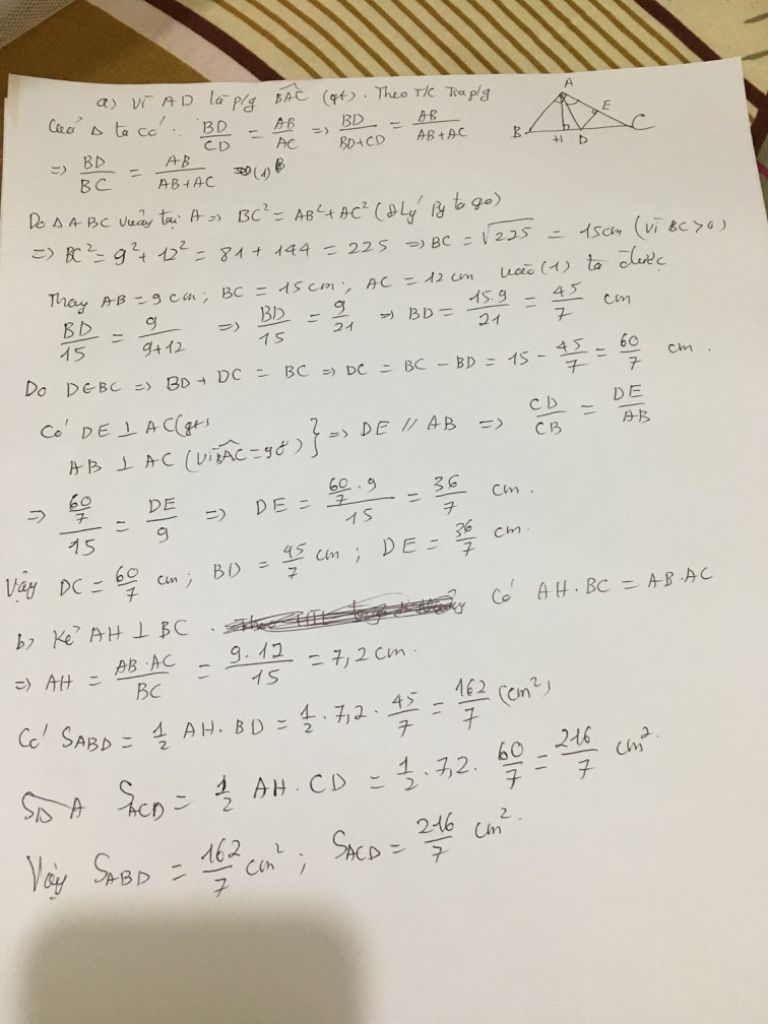 a) Vì AD là p/g BAC (gt). Theo T/C Tia p/g
của Δ ta có: BD/CD = AB/AC => BD/BD+CD = AB/AB+AC
=> BD/BC = AB/AB+AC (1)
Do ΔABC vuông tại A => BC² = AB² + AC² (Đlý Py to go)
=> BC² = 9² + 12² = 81 + 144 = 225 => BC = √225 = 15cm (vì BC > 0)
Thay AB = 9 cm; BC = 15 cm; AC = 12 cm vào (1) ta được
BD/15 = 9/9+12 => BD/15 = 9/21 => BD = 15.9/21 = 45/7 cm
Do D∈BC => BD + DC = BC => DC = BC - BD = 15 - 45/7 = 60/7 cm.
Có DE ⊥ AC (gt)
AB ⊥ AC (Vì BAC = 90) } => DE // AB => CD/CB = DE/AB
=> 60/7/15 = DE/9 => DE = 60/7 . 9/15 = 36/7 cm.
Vậy DC = 60/7 cm; BD = 45/7 cm; DE = 36/7 cm.
b, Kẻ AH ⊥ BC. Có AH.BC = AB.AC
=> AH = AB.AC/BC = 9.12/15 = 7,2 cm.
Có SABD = 1/2 AH.BD = 1/2 . 7,2 . 45/7 = 162/7 (cm²)
SACD = 1/2 AH.CD = 1/2 . 7,2 . 60/7 = 216/7 cm².
Vậy SABD = 162/7 cm²; SACD = 216/7 cm².
A
E
B
H
D
C